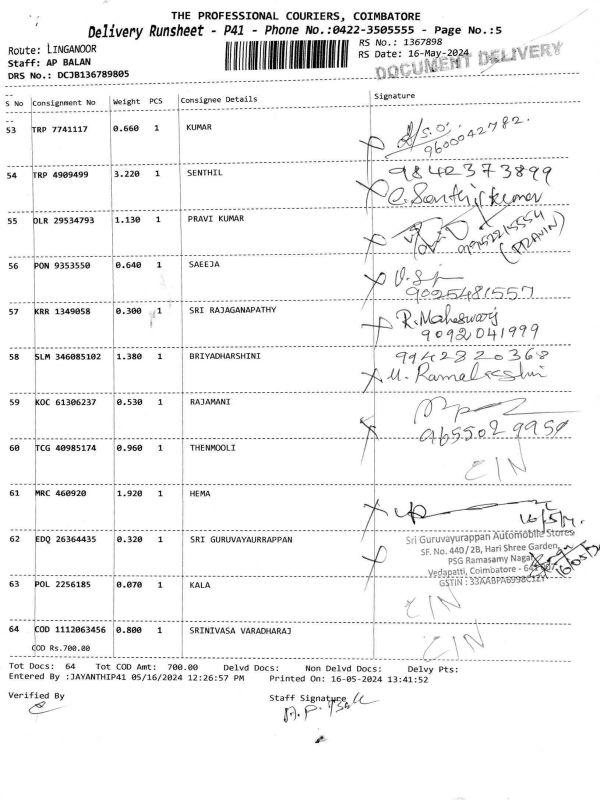 THE PROFESSIONAL COURIERS, COIMBATORE
Delivery Runsheet - P41 - Phone No.:0422-3505555 - Page No.:5
Route: LINGANOOR
Staff: AP BALAN
DRS No.: DCJB136789805
RS No.: 1367898
RS Date: 16-May-2024
DOCUMENT DELIVERY
S No Consignment No Weight PCS Consignee Details Signature
53 TRP 7741117 0.660 1 KUMAR
9600042782.
54 TRP 4909499 3.220 1 SENTHIL
9842373899
C. Senthilkumar
55 DLR 29534793 1.130 1 PRAVI KUMAR
(PRAVIN)
56 PON 9353550 0.640 1 SAEEJA
9025481557
57 KRR 1349058 0.300 1 SRI RAJAGANAPATHY
R. Maheswari
9092041999
58 SLM 346085102 1.380 1 BRIYADHARSHINI
9942820368
M. Ramalakshmi
59 KOC 61306237 0.530 1 RAJAMANI
9655029950
60 TCG 40985174 0.960 1 THENMOOLI
C/N
61 MRC 460920 1.920 1 HEMA
16/5/
62 EDQ 26364435 0.320 1 SRI GURUVAYAURRAPPAN
Sri Guruvayurappan Automobile Stores
SF. No. 440/2B, Hari Shree Garden,
PSG Ramasamy Nagar,
Vedapatti, Coimbatore -
GSTIN : 33AABPA6998C1ZY
63 POL 2256185 0.070 1 KALA
C/N
64 COD 1112063456 0.800 1 SRINIVASA VARADHARAJ
C/N
COD Rs.700.00
Tot Docs: 64 Tot COD Amt: 700.00 Delvd Docs: Non Delvd Docs: Delvy Pts:
Entered By :JAYANTHIP41 05/16/2024 12:26:57 PM Printed On: 16-05-2024 13:41:52
Verified By
Staff Signature
A.P. Balu